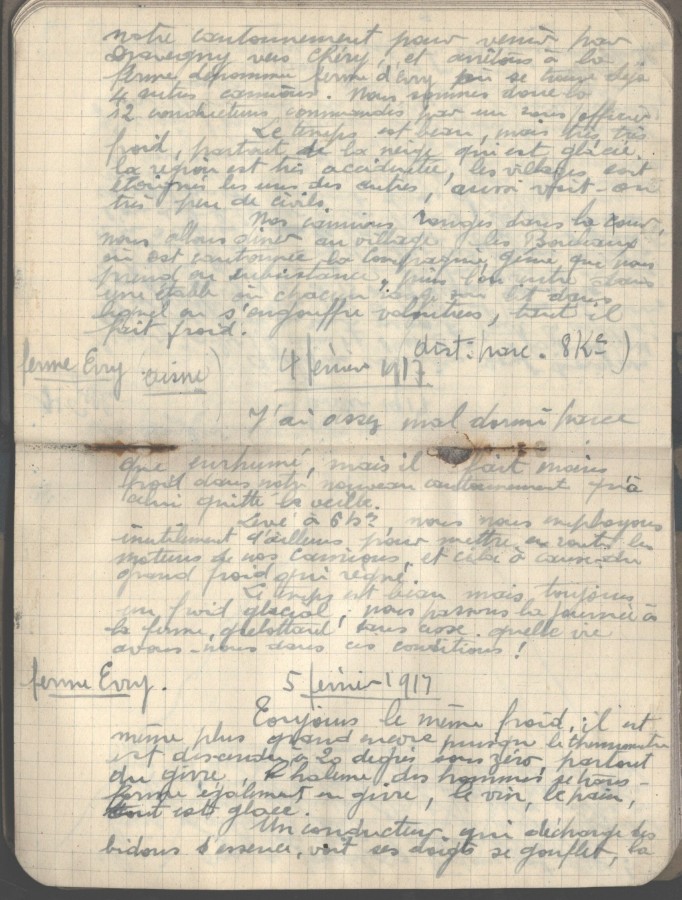 notre cantonnement pour venir par
Savigny vers Chéry, et arrêtons à la
ferme dénommée ferme d'Evry où se trouve déjà
4 autres camions. Nous sommes donc là
12 conducteurs commandés par un sous/officier.
Le temps est beau, mais très très
froid, partout de la neige qui est glacée.
la région est très accidentée, les villages sont
éloignés les uns des autres, aussi voit-on
très peu de civils.
Nos camions rangés dans la cour,
nous allons diner au village les Bordeaux
où est cantonnée la Compagnie génie qui nous
prend en subsistance, puis l'on entre dans
une étable où chacun lit dans
lequel on s'engouffre volontiers, tant il
fait froid.
(dist. parc. 8Ks)
ferme Evry aisne) 4 février 1917
J'ai assez mal dormi parce
que enrhumé, mais il fait moins
froid dans notre nouveau cantonnement qu'à
celui quitté la veille.
Levé à 6h½ nous nous employons
inutilement d'ailleurs pour mettre en route les
moteurs de nos camions, et cela à cause du
grand froid qui règne.
Le temps est beau mais toujours
un froid glacial, nous passons la journée à
la ferme, grelottant sans cesse. quelle vie
avons-nous dans ces conditions !
ferme Evry. 5 février 1917
Toujours le même froid, il est
même plus grand encore puisque le thermomètre
est descendu à 20 degrés sous zéro, partout
du givre, l'haleine des hommes se trans-
forme également en givre, le vin, le pain,
tout est glacé.
Un conducteur qui décharge des
bidons d'essence, voit ses doigts se gonfler, la